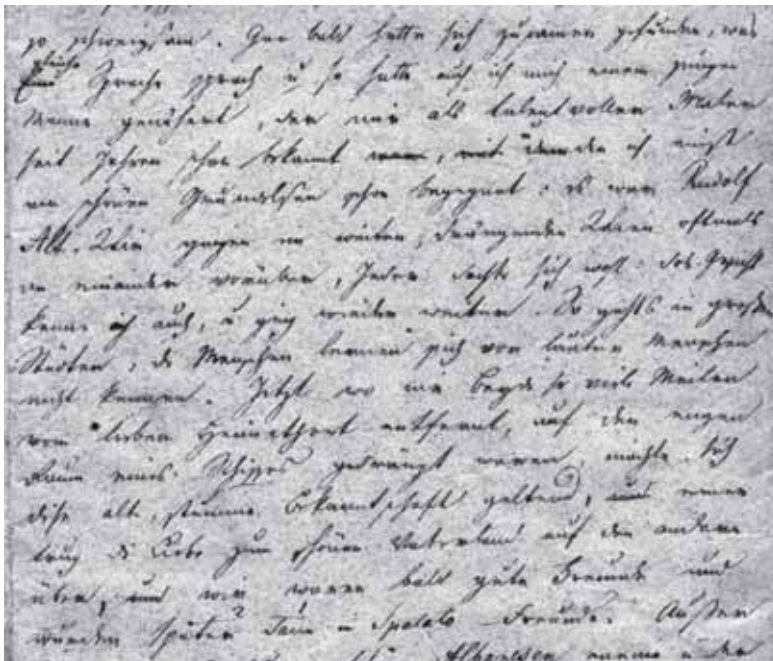 so schweigsam. Gar bald hatte sich zusamen gefunden, was
gleiche Sprache sprach u so hatte auch ich mich einem jungen
Manne genähert, der mir als talentvoller Maler
seit Jahren schon bekannt war, mit dem ich
am schönen schon begegnet: es war Rudolf
Alt. gingen im weiten, Wien oftmals
an einander vorüber, Jeder dachte sich wohl: das Gesicht
kenne ich auch, u ging wieder weiter. So gehts in großen
Städten, di Menschen lernen sich vor lauter Menschen
nicht kennen. Jetzt wo wir beyde so viele Meilen
vom lieben Heimathsort entfernt, auf den engen
Raum eines Schiffes gedrängt waren, machte sich
dise alte, stumme Bekanntschaft geltend, einer
trug di Liebe zum schönen Vaterland auf den andern
über, und wir waren bald gute Freunde und
wurden später in Spalato Freunde. Außer
Albanesen